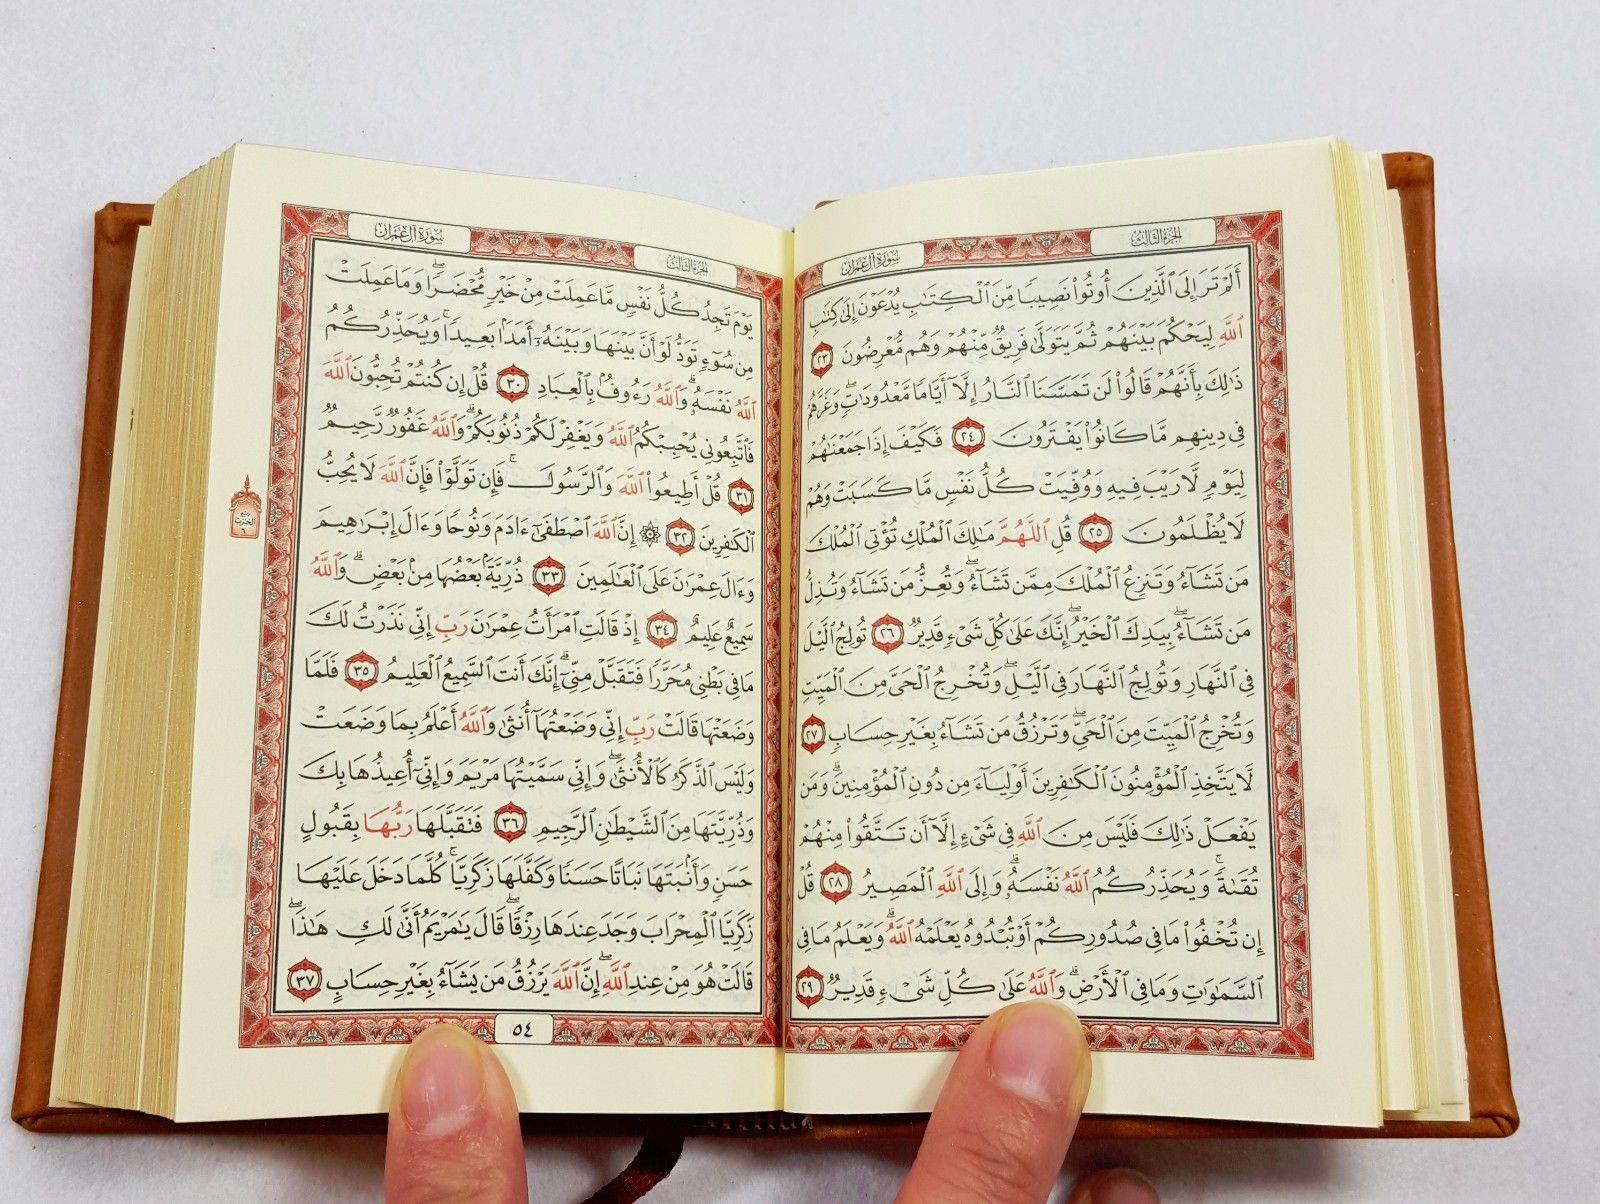 سورة آل عمران
الجزء الثالث
أَلَمْ تَرَ إِلَى ٱلَّذِينَ أُوتُوا۟ نَصِيبًا مِّنَ ٱلْكِتَٰبِ يُدْعَوْنَ إِلَىٰ كِتَٰبِ
ٱللَّهِ لِيَحْكُمَ بَيْنَهُمْ ثُمَّ يَتَوَلَّىٰ فَرِيقٌ مِّنْهُمْ وَهُم مُّعْرِضُونَ ٢٣
ذَٰلِكَ بِأَنَّهُمْ قَالُوا۟ لَن تَمَسَّنَا ٱلنَّارُ إِلَّآ أَيَّامًا مَّعْدُودَٰتٍ ۖ وَغَرَّهُمْ
فِى دِينِهِم مَّا كَانُوا۟ يَفْتَرُونَ ٢٤ فَكَيْفَ إِذَا جَمَعْنَٰهُمْ
لِيَوْمٍ لَّا رَيْبَ فِيهِ وَوُفِّيَتْ كُلُّ نَفْسٍ مَّا كَسَبَتْ وَهُمْ
لَا يُظْلَمُونَ ٢٥ قُلِ ٱللَّهُمَّ مَٰلِكَ ٱلْمُلْكِ تُؤْتِى ٱلْمُلْكَ
مَن تَشَآءُ وَتَنزِعُ ٱلْمُلْكَ مِمَّن تَشَآءُ ۖ وَتُعِزُّ مَن تَشَآءُ وَتُذِلُّ
مَن تَشَآءُ ۖ بِيَدِكَ ٱلْخَيْرُ ۖ إِنَّكَ عَلَىٰ كُلِّ شَىْءٍ قَدِيرٌ ٢٦ تُولِجُ ٱلَّيْلَ
فِى ٱلنَّهَارِ وَتُولِجُ ٱلنَّهَارَ فِى ٱلَّيْلِ ۖ وَتُخْرِجُ ٱلْحَىَّ مِنَ ٱلْمَيِّتِ
وَتُخْرِجُ ٱلْمَيِّتَ مِنَ ٱلْحَىِّ ۖ وَتَرْزُقُ مَن تَشَآءُ بِغَيْرِ حِسَابٍ ٢٧
لَّا يَتَّخِذِ ٱلْمُؤْمِنُونَ ٱلْكَٰفِرِينَ أَوْلِيَآءَ مِن دُونِ ٱلْمُؤْمِنِينَ ۖ وَمَن
يَفْعَلْ ذَٰلِكَ فَلَيْسَ مِنَ ٱللَّهِ فِى شَىْءٍ إِلَّآ أَن تَتَّقُوا۟ مِنْهُمْ
تُقَىٰةً ۗ وَيُحَذِّرُكُمُ ٱللَّهُ نَفْسَهُۥ ۗ وَإِلَى ٱللَّهِ ٱلْمَصِيرُ ٢٨ قُلْ
إِن تُخْفُوا۟ مَا فِى صُدُورِكُمْ أَوْ تُبْدُوهُ يَعْلَمْهُ ٱللَّهُ ۗ وَيَعْلَمُ مَا فِى
ٱلسَّمَٰوَٰتِ وَمَا فِى ٱلْأَرْضِ ۗ وَٱللَّهُ عَلَىٰ كُلِّ شَىْءٍ قَدِيرٌ ٢٩
الجزء الثالث
سورة آل عمران
يَوْمَ تَجِدُ كُلُّ نَفْسٍ مَّا عَمِلَتْ مِنْ خَيْرٍ مُّحْضَرًا وَمَا عَمِلَتْ
مِن سُوٓءٍ تَوَدُّ لَوْ أَنَّ بَيْنَهَا وَبَيْنَهُۥٓ أَمَدًۢا بَعِيدًا ۗ وَيُحَذِّرُكُمُ
ٱللَّهُ نَفْسَهُۥ ۗ وَٱللَّهُ رَءُوفٌۢ بِٱلْعِبَادِ ٣٠ قُلْ إِن كُنتُمْ تُحِبُّونَ ٱللَّهَ
فَٱتَّبِعُونِى يُحْبِبْكُمُ ٱللَّهُ وَيَغْفِرْ لَكُمْ ذُنُوبَكُمْ ۗ وَٱللَّهُ غَفُورٌ رَّحِيمٌ
٣١ قُلْ أَطِيعُوا۟ ٱللَّهَ وَٱلرَّسُولَ ۖ فَإِن تَوَلَّوْا۟ فَإِنَّ ٱللَّهَ لَا يُحِبُّ
ٱلْكَٰفِرِينَ ٣٢ ۞ إِنَّ ٱللَّهَ ٱصْطَفَىٰٓ ءَادَمَ وَنُوحًا وَءَالَ إِبْرَٰهِيمَ
وَءَالَ عِمْرَٰنَ عَلَى ٱلْعَٰلَمِينَ ٣٣ ذُرِّيَّةًۢ بَعْضُهَا مِنۢ بَعْضٍ ۗ وَٱللَّهُ
سَمِيعٌ عَلِيمٌ ٣٤ إِذْ قَالَتِ ٱمْرَأَتُ عِمْرَٰنَ رَبِّ إِنِّى نَذَرْتُ لَكَ
مَا فِى بَطْنِى مُحَرَّرًا فَتَقَبَّلْ مِنِّىٓ ۖ إِنَّكَ أَنتَ ٱلسَّمِيعُ ٱلْعَلِيمُ ٣٥ فَلَمَّا
وَضَعَتْهَا قَالَتْ رَبِّ إِنِّى وَضَعْتُهَآ أُنثَىٰ وَٱللَّهُ أَعْلَمُ بِمَا وَضَعَتْ
وَلَيْسَ ٱلذَّكَرُ كَٱلْأُنثَىٰ ۖ وَإِنِّى سَمَّيْتُهَا مَرْيَمَ وَإِنِّىٓ أُعِيذُهَا بِكَ
وَذُرِّيَّتَهَا مِنَ ٱلشَّيْطَٰنِ ٱلرَّجِيمِ ٣٦ فَتَقَبَّلَهَا رَبُّهَا بِقَبُولٍ
حَسَنٍ وَأَنۢبَتَهَا نَبَاتًا حَسَنًا وَكَفَّلَهَا زَكَرِيَّا ۖ كُلَّمَا دَخَلَ عَلَيْهَا
زَكَرِيَّا ٱلْمِحْرَابَ وَجَدَ عِندَهَا رِزْقًا ۖ قَالَ يَٰمَرْيَمُ أَنَّىٰ لَكِ هَٰذَا ۖ
قَالَتْ هُوَ مِنْ عِندِ ٱللَّهِ ۖ إِنَّ ٱللَّهَ يَرْزُقُ مَن يَشَآءُ بِغَيْرِ حِسَابٍ ٣٧
ربع
الحزب
٦
٥٤